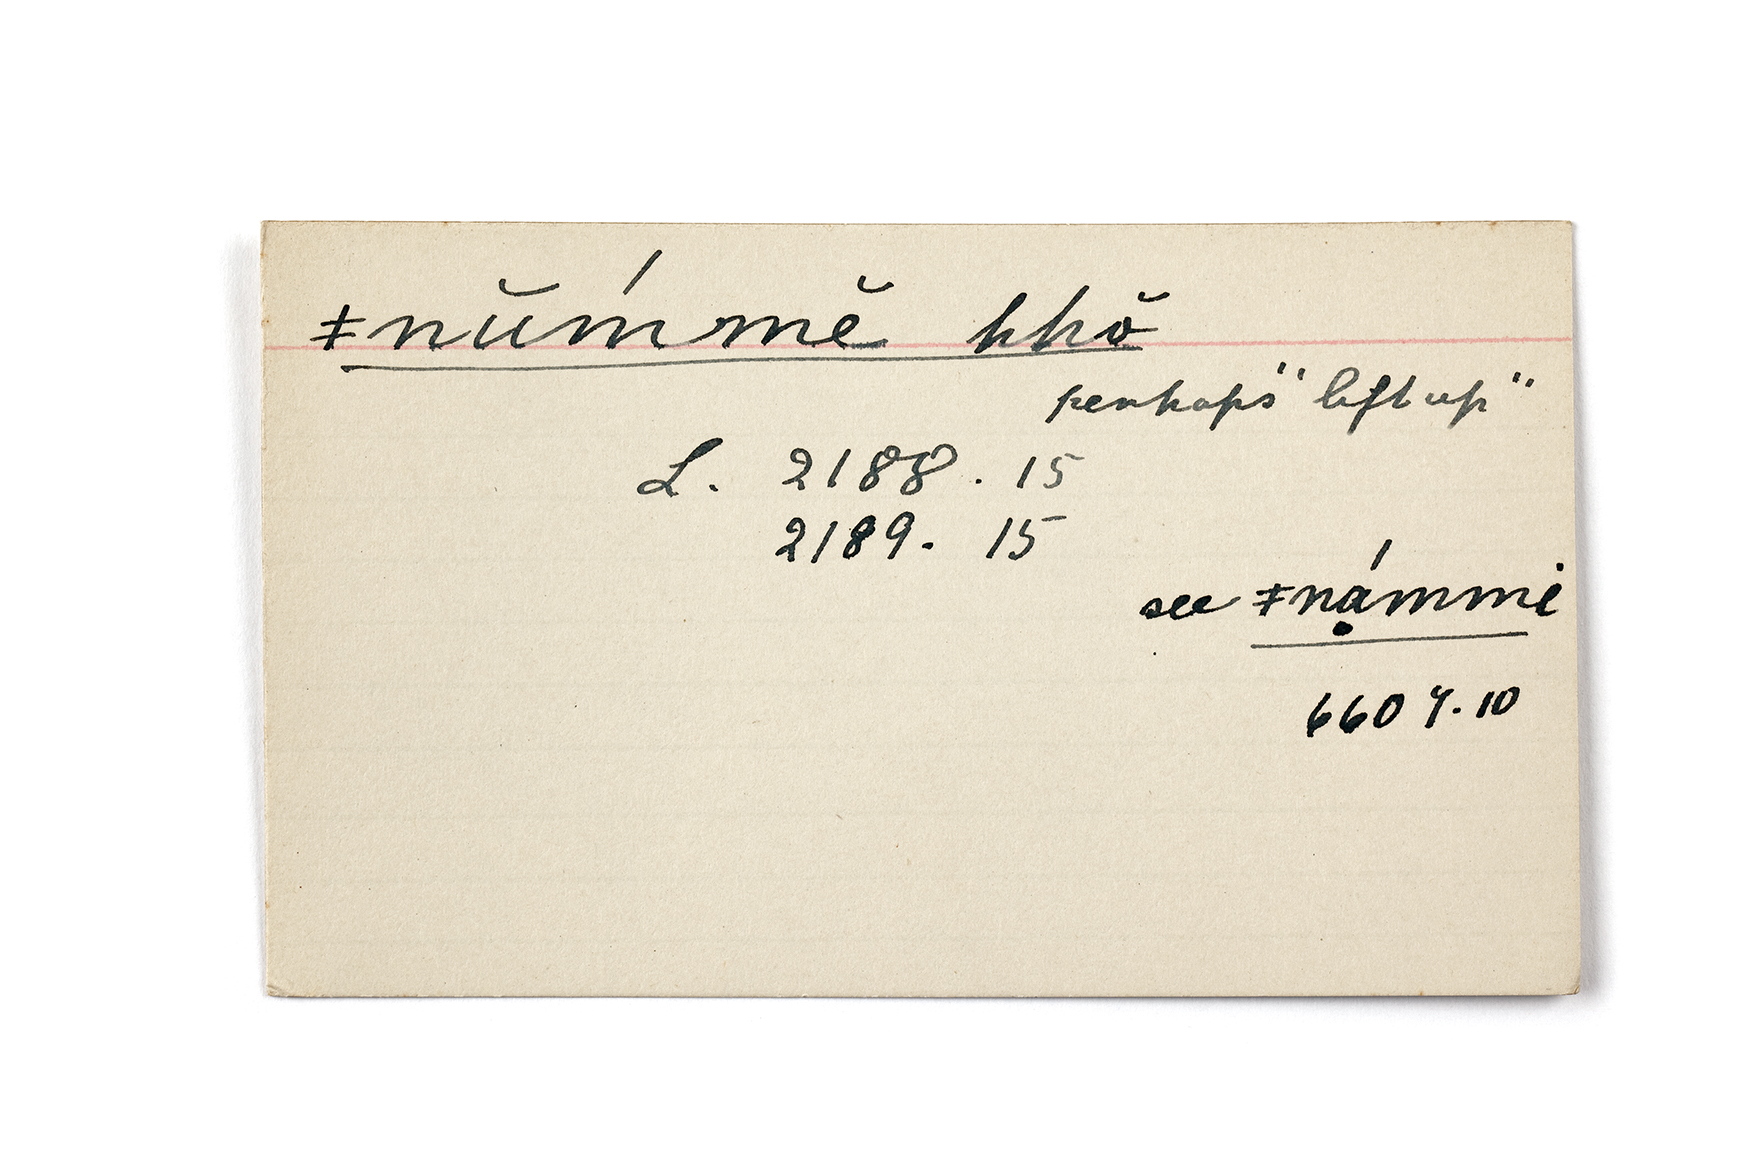 ǂnŭḿmĕ hhŏ
perhaps "lift up"
L. 2188. 15
2189. 15
see ǂnạ́mmi
6607.10